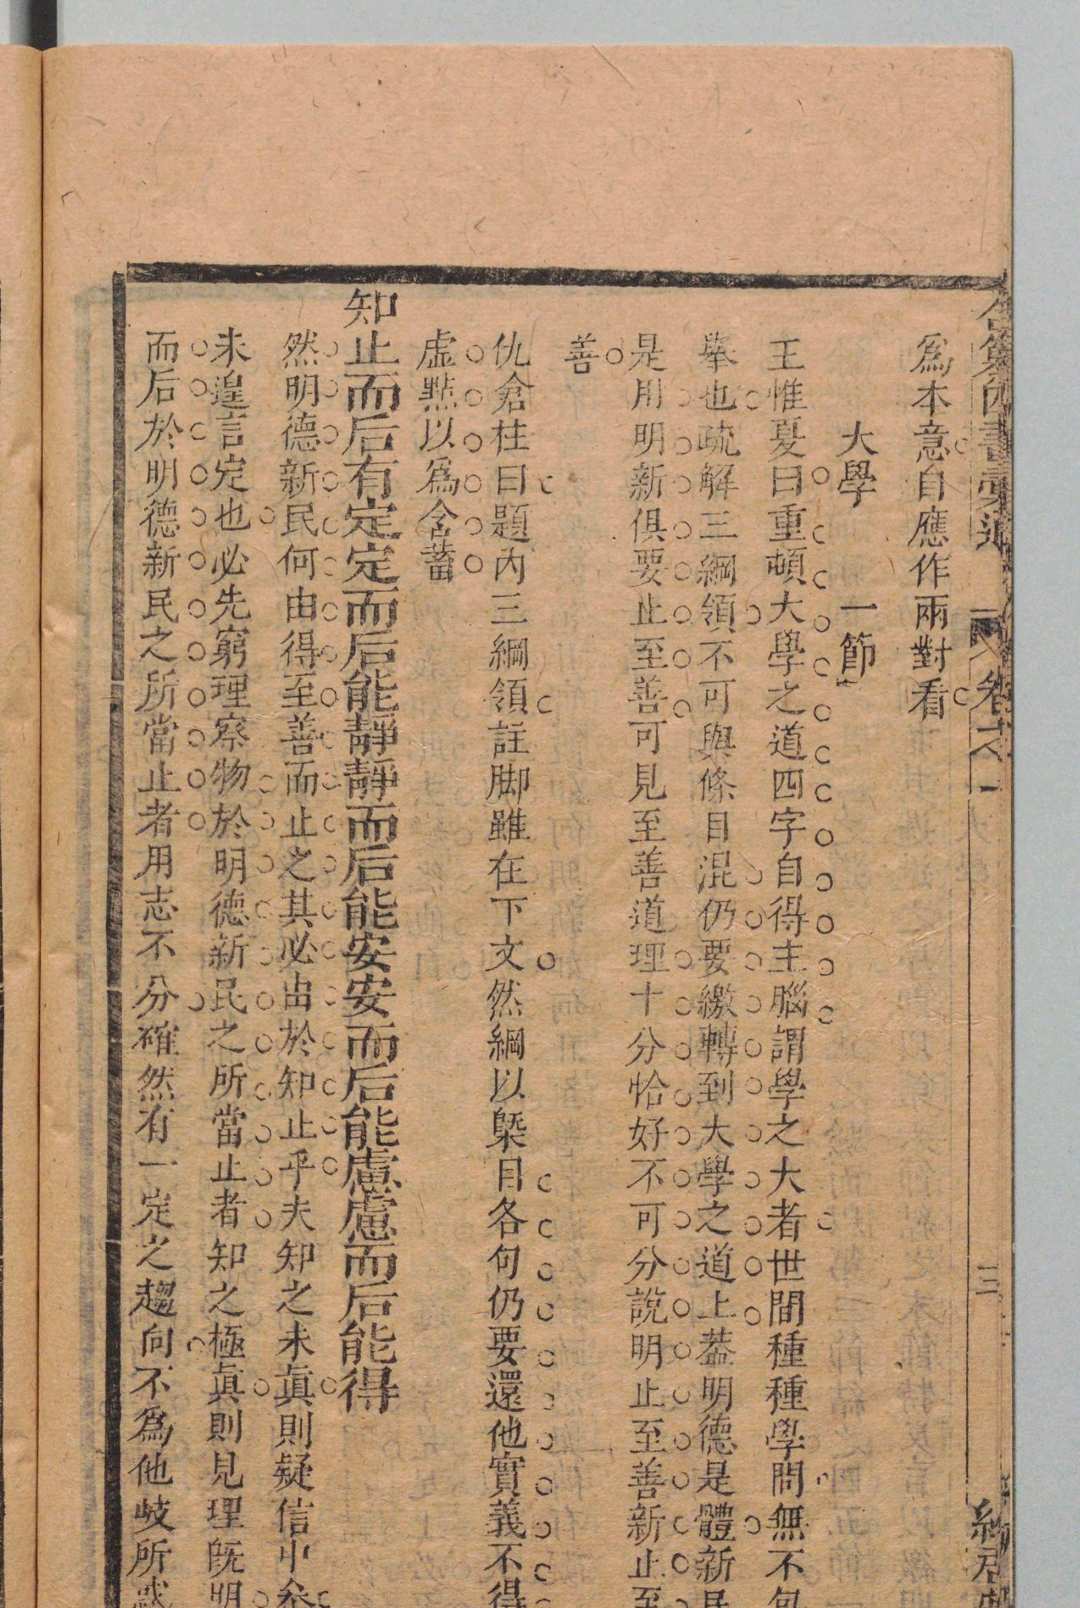 四書彙通
卷之一
三
爲本意自應作兩對看
大學　一節
王惟夏曰重頓大學之道四字自得主腦謂學之大者世間種種學問無不包
舉也疏解三綱領不可與條目混仍要繳轉到大學之道上葢明德是體新民
是用明新俱要止至善可見至善道理十分恰好不可分說明止至善新止至
善
仇滄柱曰題內三綱領註脚雖在下文然綱以槩目各句仍要還他實義不得
虛點以爲含蓄
知止而后有定定而后能靜靜而后能安安而后能慮慮而后能得
然明德新民何由得至善而止之其必由於知止乎夫知之未眞則疑信中參
未遑言定也必先窮理察物於明德新民之所當止者知之極眞則見理旣明
而后於明德新民之所當止者用志不分確然有一定之趨向不爲他岐所惑